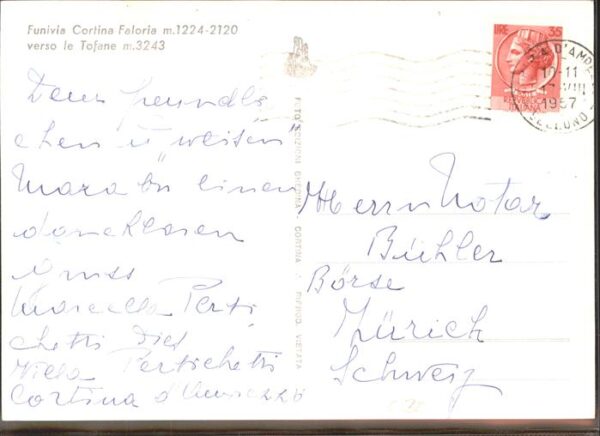 Funivia Cortina Faloria m.1224-2120
verso le Tofane m.3243
LIRE 35
10-11
1957
BELLUNO
Dem freundli
chen u "weisen"
einen
Gruss
Marcella Perti
chetti
Villa Pertichetti
Cortina d'Ampezzo
FOTO EDIZIONI GHEDINA CORTINA RIPROD. VIETATA
Herrn Notar
Bühler
Börse
Zürich
Schweiz